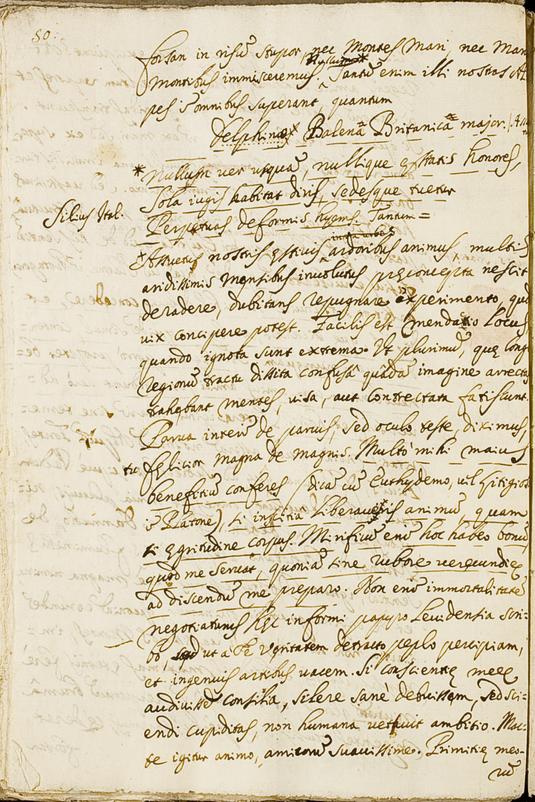 80.
forsan in risu stupor, nec Montes Mari, nec Mare
montibus immisceremus. Tantu enim illi nostras Al-
pes i omnibus superant, quantum
delphinis Balena Britanica major.
* Nullum ver usqua, nullique estatis honores,
Sola iugis habitat diris, sedesque tuetur
Silius Ital.
Perpetuas deformis hyems. Tantum=
Assuetus nostris estivis ardoribus animus, multis
aridissimis mensibus involutus preconcepta nescit
deradere, dubitans repugnare experimento, quod
vix concipere potest. Facilis est mendacio locus
quando ignota sunt extrema. Ut plurimu, que longo
regionu tractu dissita confusa quada imagine arrectas
trahebant mentes, visa, aut contrectata fatiscunt.
Parva interi de parvis, sed oculo teste diximus,
felicior magna de magnis. Multo mihi maius
benefitiu conferes (dica cu Euthydemo, vel
Platone), si inscitia liberaveris animu, quam
si egritudine corpus. Mirificu enu hoc habeo bonu,
quod me servat, quonia sine rubore verecundie
ad discendu me preparo. Non enu immortalitate
negotiaturus hec informi papyro Levidensia scri-
bo, sed ut Veritatem detracto peplo percipiam,
et ingenuis artibus vacem. Si conscientie mee
audivisse consilia, silere sane debuissem, sed sci-
endi cupiditas, non humana vetuit ambitio. Mac-
te igitur animo, amicoru suavissime. Primitie meo-
ru